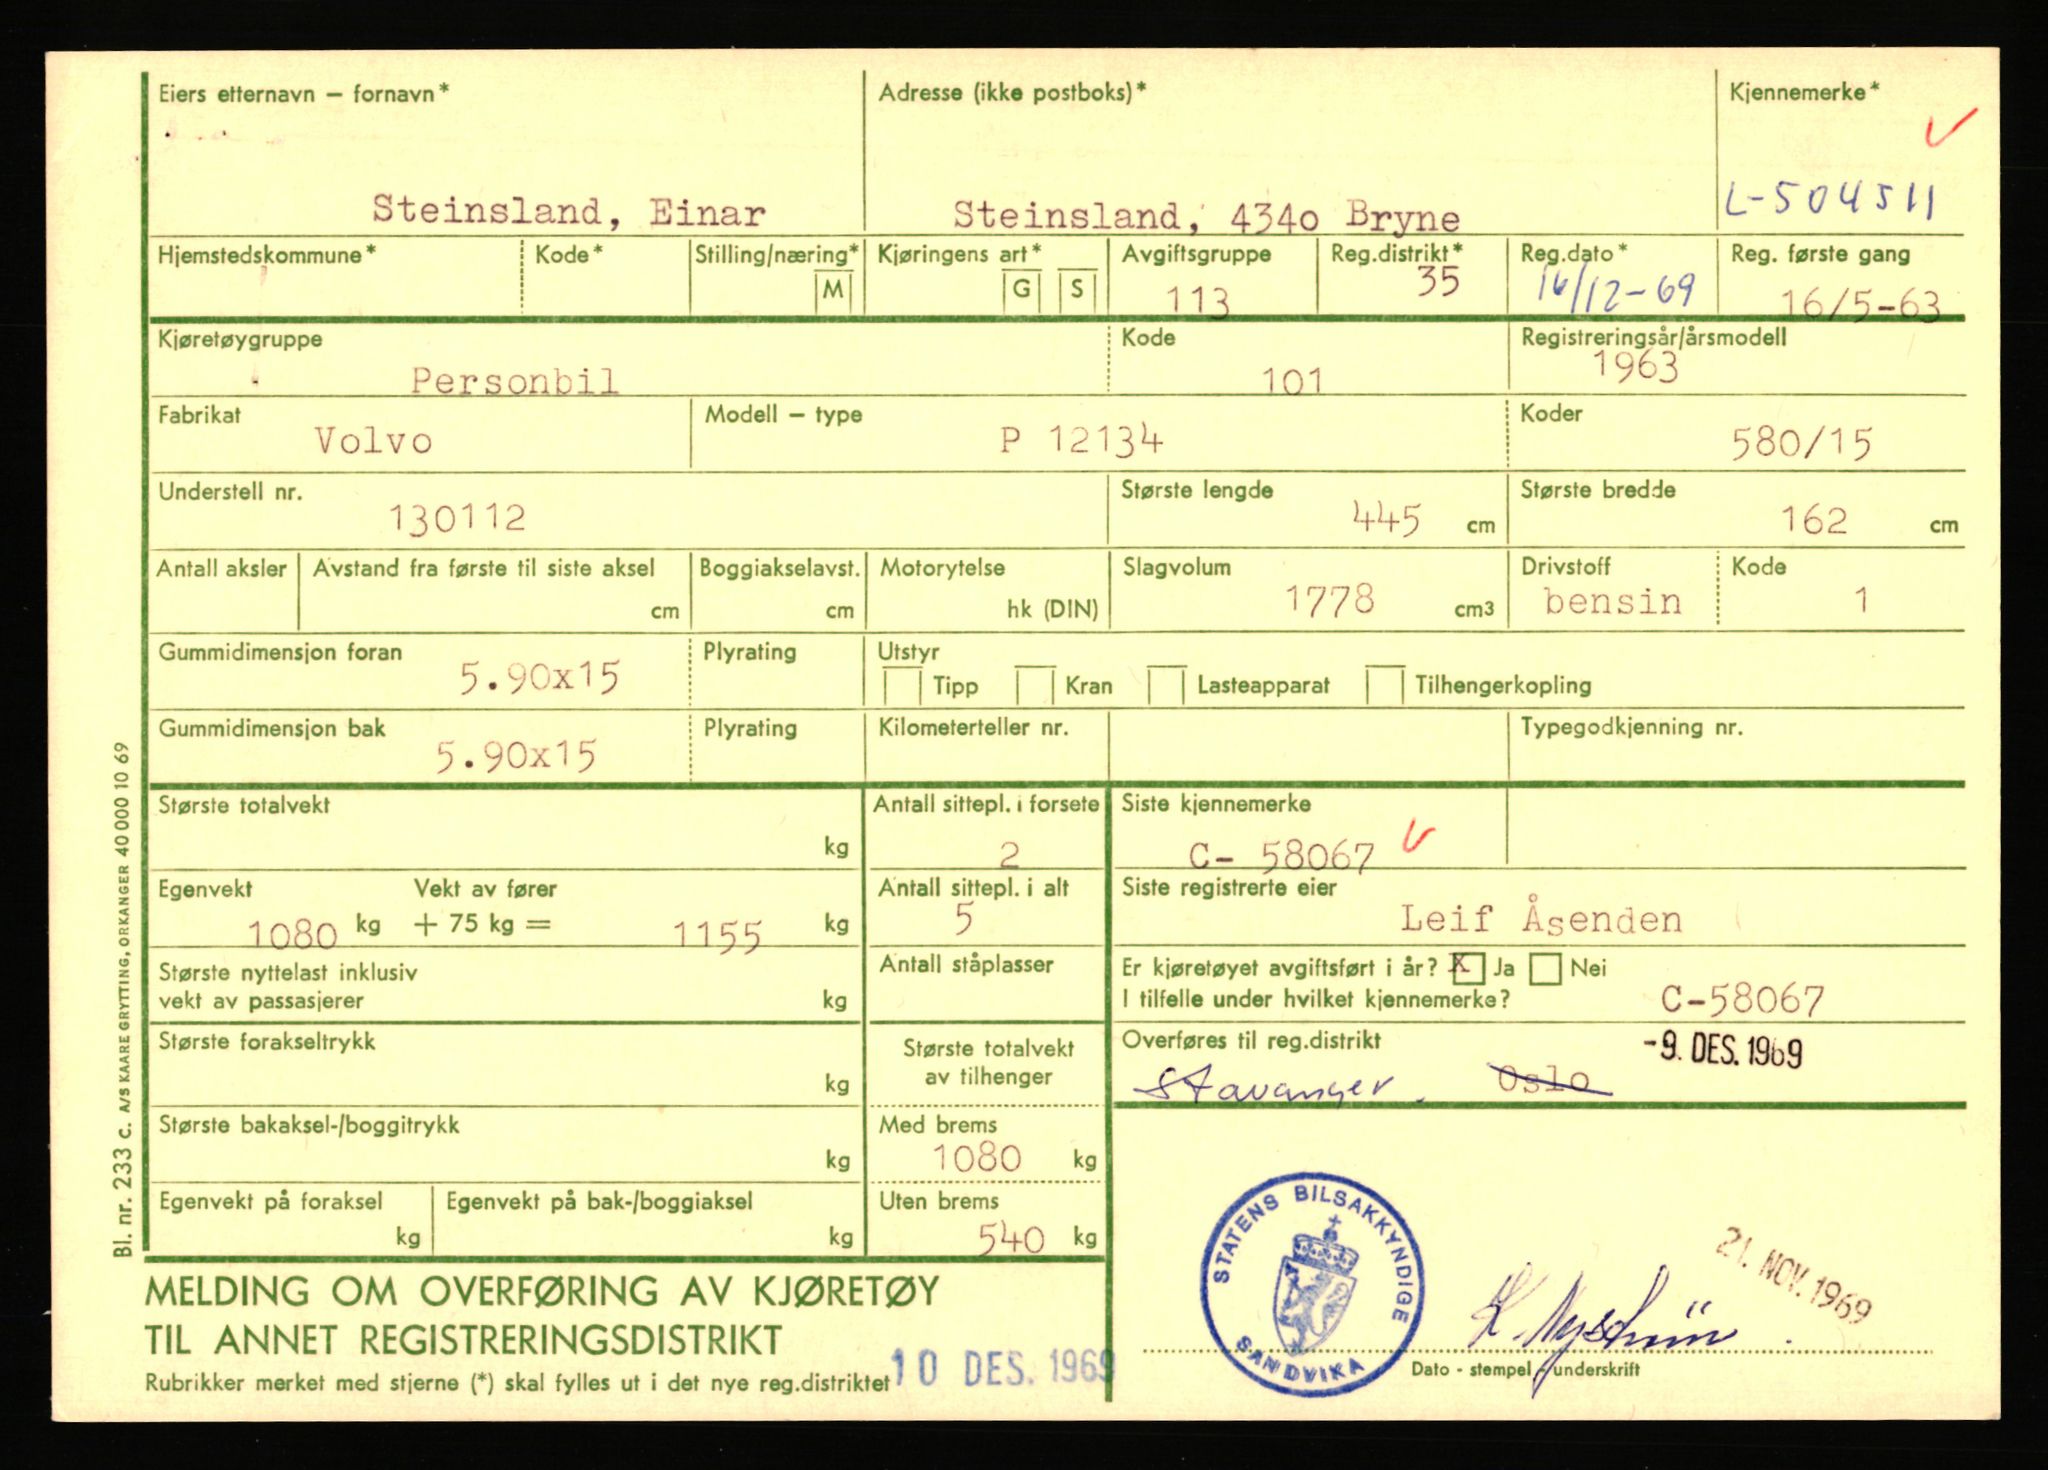 Eiers etternavn – fornavn*
Adresse (ikke postboks)*
Kjennemerke*
Steinsland, Einar
Steinsland, 4340 Bryne
L-504511
Hjemstedskommune*
Kode*
Stilling/næring*
M
Kjøringens art*
G
S
Avgiftsgruppe
113
Reg.distrikt*
35
Reg.dato*
16/12-69
Reg. første gang
16/5-63
Kjøretøygruppe
Personbil
Kode
101
Registreringsår/årsmodell
1963
Fabrikat
Volvo
Modell – type
P 12134
Koder
580/15
Understell nr.
130112
Største lengde
445 cm
Største bredde
162 cm
Antall aksler
Avstand fra første til siste aksel
cm
Boggiakselavst.
cm
Motorytelse
hk (DIN)
Slagvolum
1778 cm3
Drivstoff
bensin
Kode
1
Gummidimensjon foran
5.90x15
Plyrating
Utstyr
Tipp
Kran
Lasteapparat
Tilhengerkopling
Gummidimensjon bak
5.90x15
Plyrating
Kilometerteller nr.
Typegodkjenning nr.
Største totalvekt
kg
Antall sittepl. i forsete
2
Siste kjennemerke
C- 58067
Egenvekt
1080 kg
Vekt av fører
+ 75 kg = 1155 kg
Antall sittepl. i alt
5
Siste registrerte eier
Leif Åsenden
Største nyttelast inklusiv
vekt av passasjerer
kg
Antall ståplasser
Er kjøretøyet avgiftsført i år? X Ja Nei
I tilfelle under hvilket kjennemerke? C-58067
Største forakseltrykk
kg
Største totalvekt
av tilhenger
Overføres til reg.distrikt
-9. DES. 1969
Stavanger. Oslo
Største bakaksel-/boggitrykk
kg
Med brems
1080 kg
Egenvekt på foraksel
kg
Egenvekt på bak-/boggiaksel
kg
Uten brems
540 kg
STATENS BILSAKKYNDIGE
SANDVIKA
21. NOV. 1969
MELDING OM OVERFØRING AV KJØRETØY
TIL ANNET REGISTRERINGSDISTRIKT
Rubrikker merket med stjerne (*) skal fylles ut i det nye reg.distriktet
10 DES. 1969
Dato - stempel - underskrift
Bl. nr. 233 C. A/S KAARE GRYTTING, ORKANGER 40 000 10 69